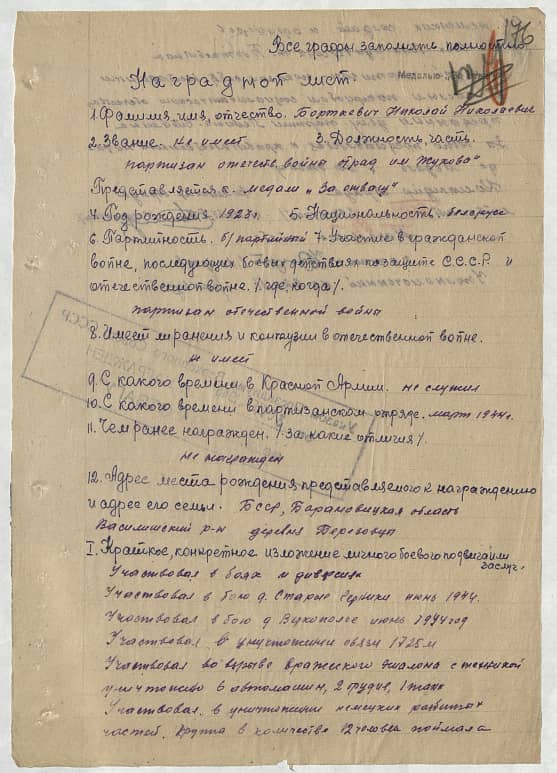 176
Все графы заполнять полностью
Наградной лист
1. Фамилия, имя, отчество. Борткевич Николай Николаевич
2. Звание. не имеет 3. Должность, часть.
партизан отечеств. война отряд им Жукова"
Представляется к. медали "За отвагу"
4. Год рождения 1927 г. 5. Национальность. беларус
6. Партийность. б/партейный 7. Участие в гражданской
войне, последующих боевых действиях по защите С.С.С.Р. и
отечественной войне. /где, когда/.
партизан отечественной война
8. Имеет ли ранения и контузии в отечественной войне.
не имеет
9. С какого времени в Красной Армии. не служил
10. С какого времени в партизанском отряде. март 1944 г.
11. Чем ранее награжден. /за какие отличия/.
не награжден
12. Адрес места рождения, представляемого к награждению
и адрес его семьи. БССР, Барановицкая область
Василишский р-н деревня Березовцы
I. Краткое, конкретное изложение личного боевого подвига или
заслуг.
Участвовал в боях и диверсиях
Участвовал в бою д. Старые июнь 1944.
Участвовал в бою д июнь 1944 год
Участвовал в уничтожении связи 1725 м
Участвовал во взрыве вражеского эшалона с техникой
уничтожено 6 автомашин, 2 орудия, 1 танк
Участвовал в уничтожении немецких разбитых
частей. Группа в количестве 12 человек поймала